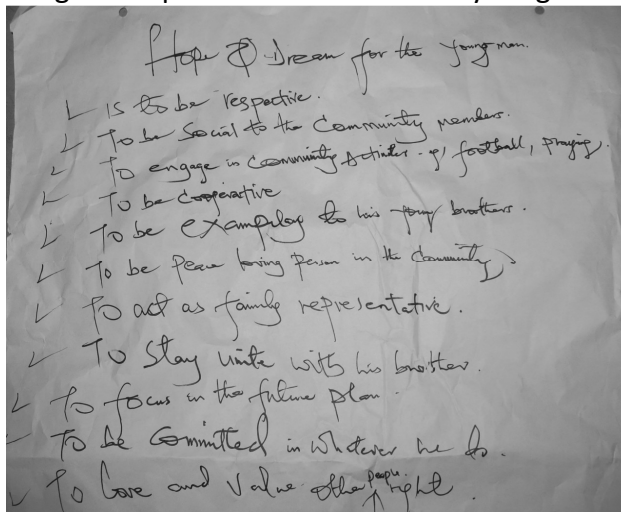 Hope & Dream for the young man.
Is to be respective.
To be Social to the Community members.
To engage in Community Activities eg football, praying.
To be Cooperative
To be examplay to his young brothers.
To be Peace loving Person in the Community
To act as family representative.
To Stay unite with his brother.
To focus in the future plan.
To be Committed in Whatever he do.
To Love and Value other people right.